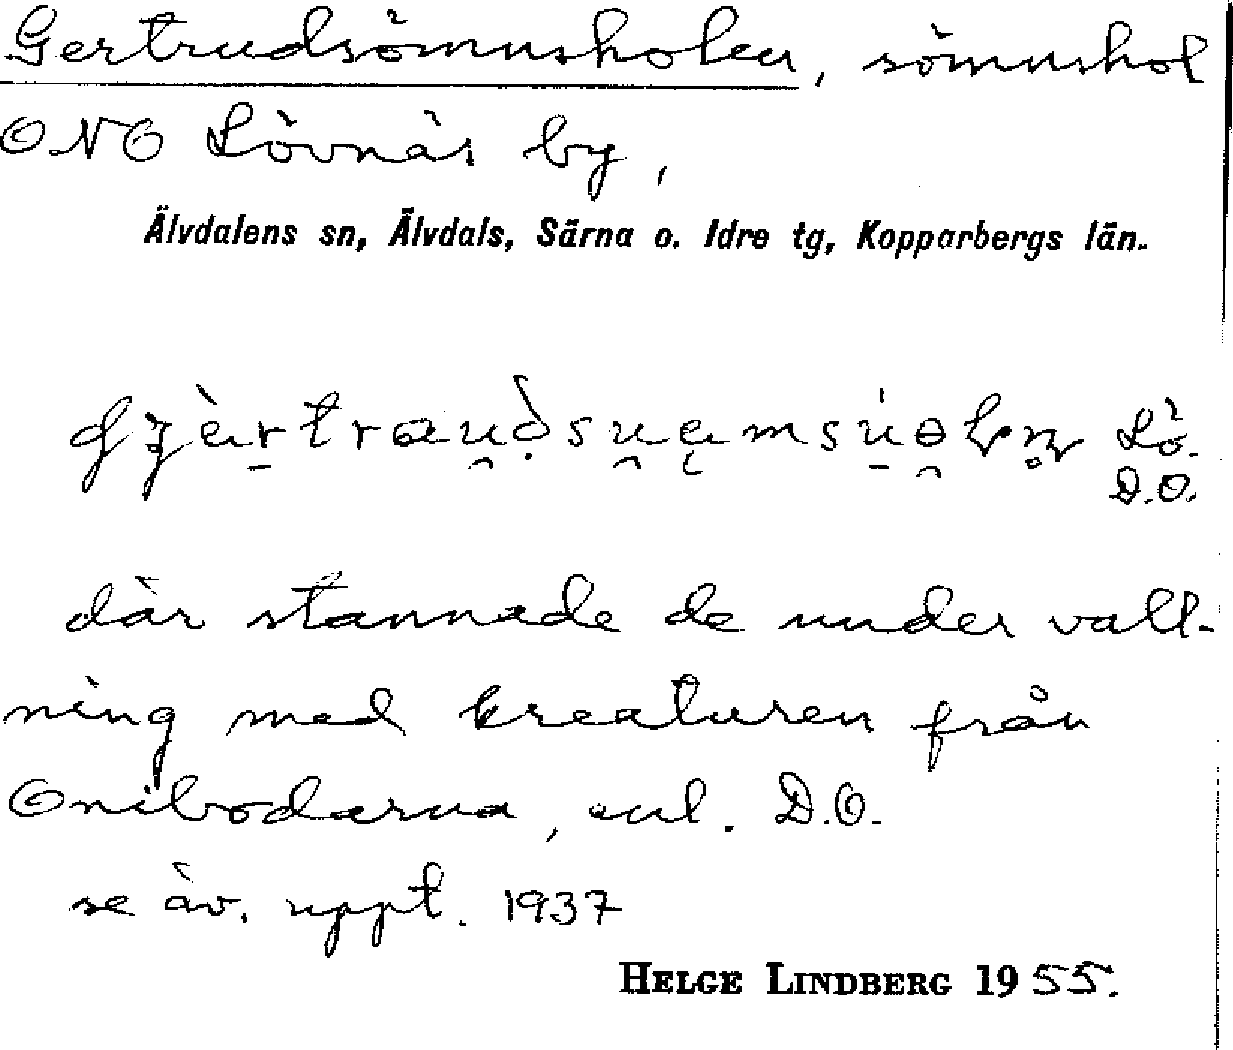 Gertrudsömnsholen, sömnshol
ONO Lövnäs by,
Älvdalens sn, Älvdals, Särna o. Idre tg, Kopparbergs län.
Lö.
D.O.
där stannade de under vall-
ning med kreaturen från
Onibodarna, enl. D.O.
se äv. uppt. 1937
HELGE LINDBERG 1955.